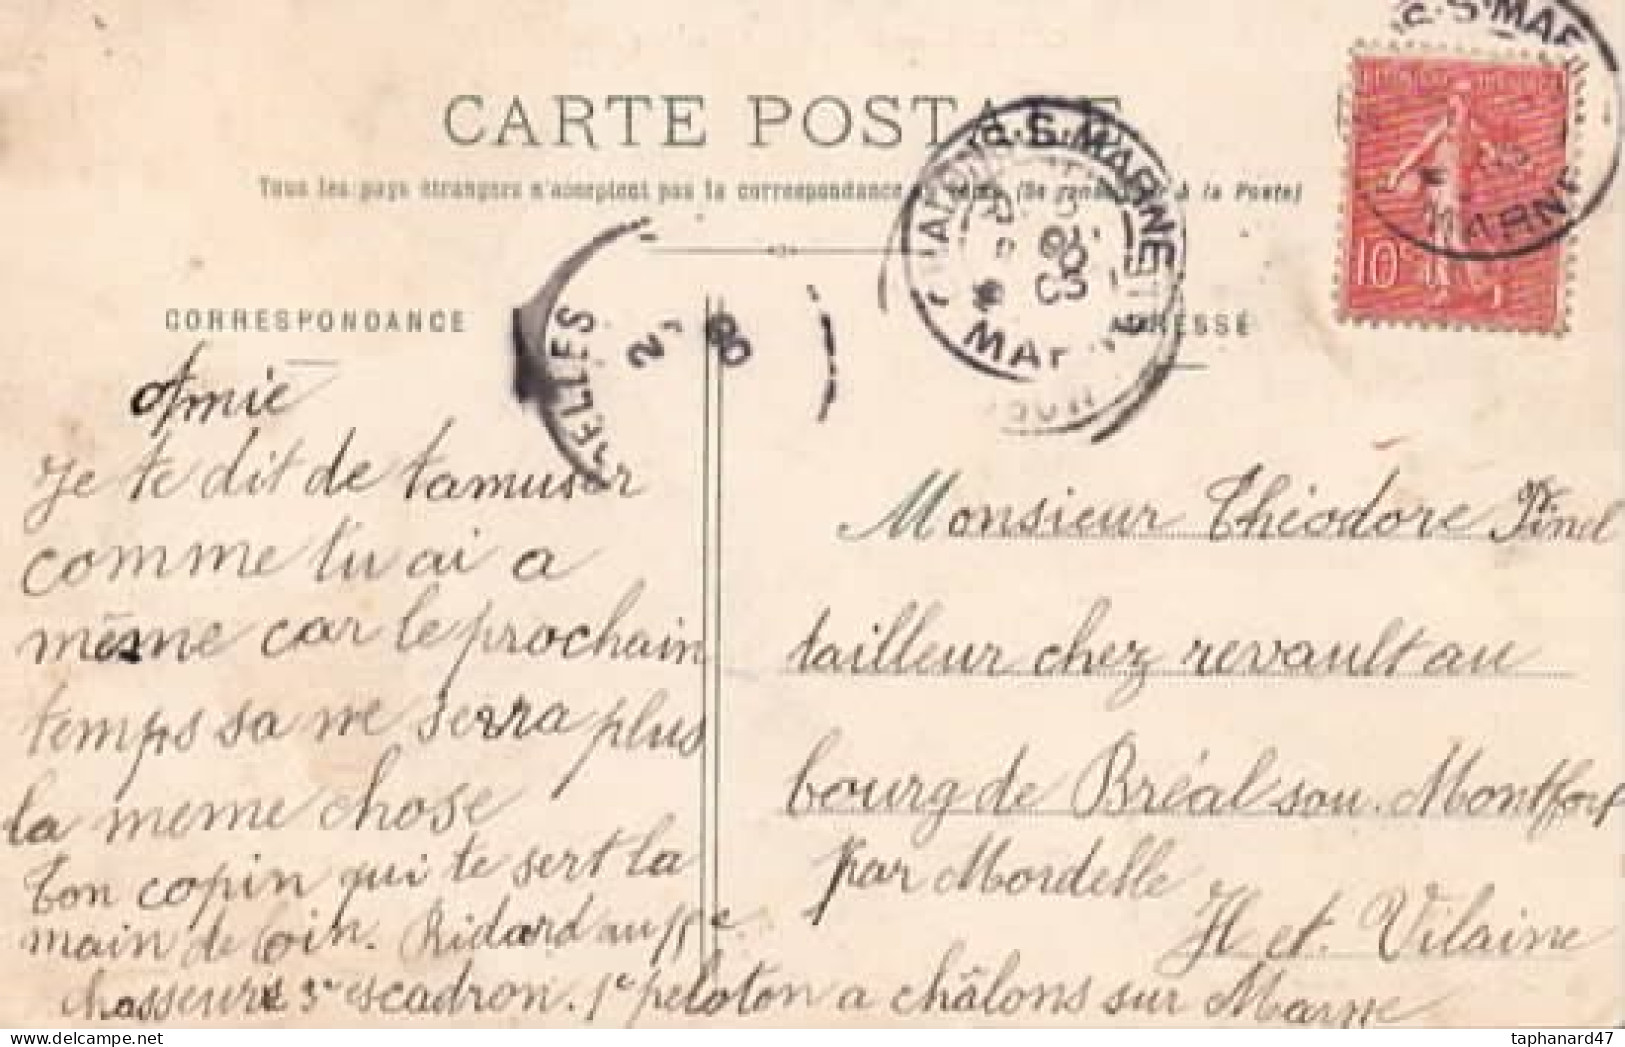 CARTE POSTALE
Tous les pays étrangers n'acceptent pas la correspondance (Se à la Poste)
CORRESPONDANCE
ADRESSE
S. MAR
MARNE
10c
S. S. MARNE
05
MAR
ELLES
Amie
Je te dit de tamuser
comme tu ai a
même car le prochain
temps sa ne serra plus
la meme chose
ton copin qui te sert la
main de loin. Ridard au 15e
chasseur 3e escadron. 1e peloton a châlons sur Marne
Monsieur Théodore Pinel
tailleur chez revault au
bourg de Bréal sou. Montfort
par Mordelle
Il et. Vilaine
taphanard47